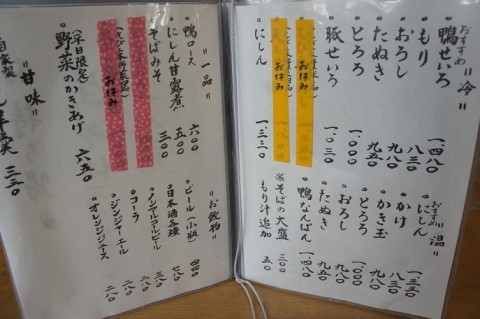 おすすめ 〝冷〟
鴨せいろ 一、四八〇
もり 八三〇
おろし 九八〇
たぬき 九五〇
とろろ 一、〇〇〇
豚せいろ 一、〇三〇
お休み
お休み
にしん 一、三三〇
おすすめ 〝温〟
にしん 一、三三〇
かけ 八三〇
かき玉 九八〇
とろろ 一、〇〇〇
おろし 九八〇
たぬき 九五〇
鴨なんばん 一、四八〇
※そばの大盛 三〇〇
もり汁追加 五〇
〝一品〟
鴨ロース 六〇〇
にしん甘露煮 五〇〇
そばみそ 三〇〇
お休み
お休み
(平日限定)
野菜のかきあげ 六五〇
〝甘味〟
自家製
三三〇
〝お飲物〟
ビール(小瓶) 四四〇
日本酒各種 七八〇
ノンアルコールビール 三八〇
コーラ 二八〇
ジンジャーエール 二八〇
オレンジジュース 二八〇